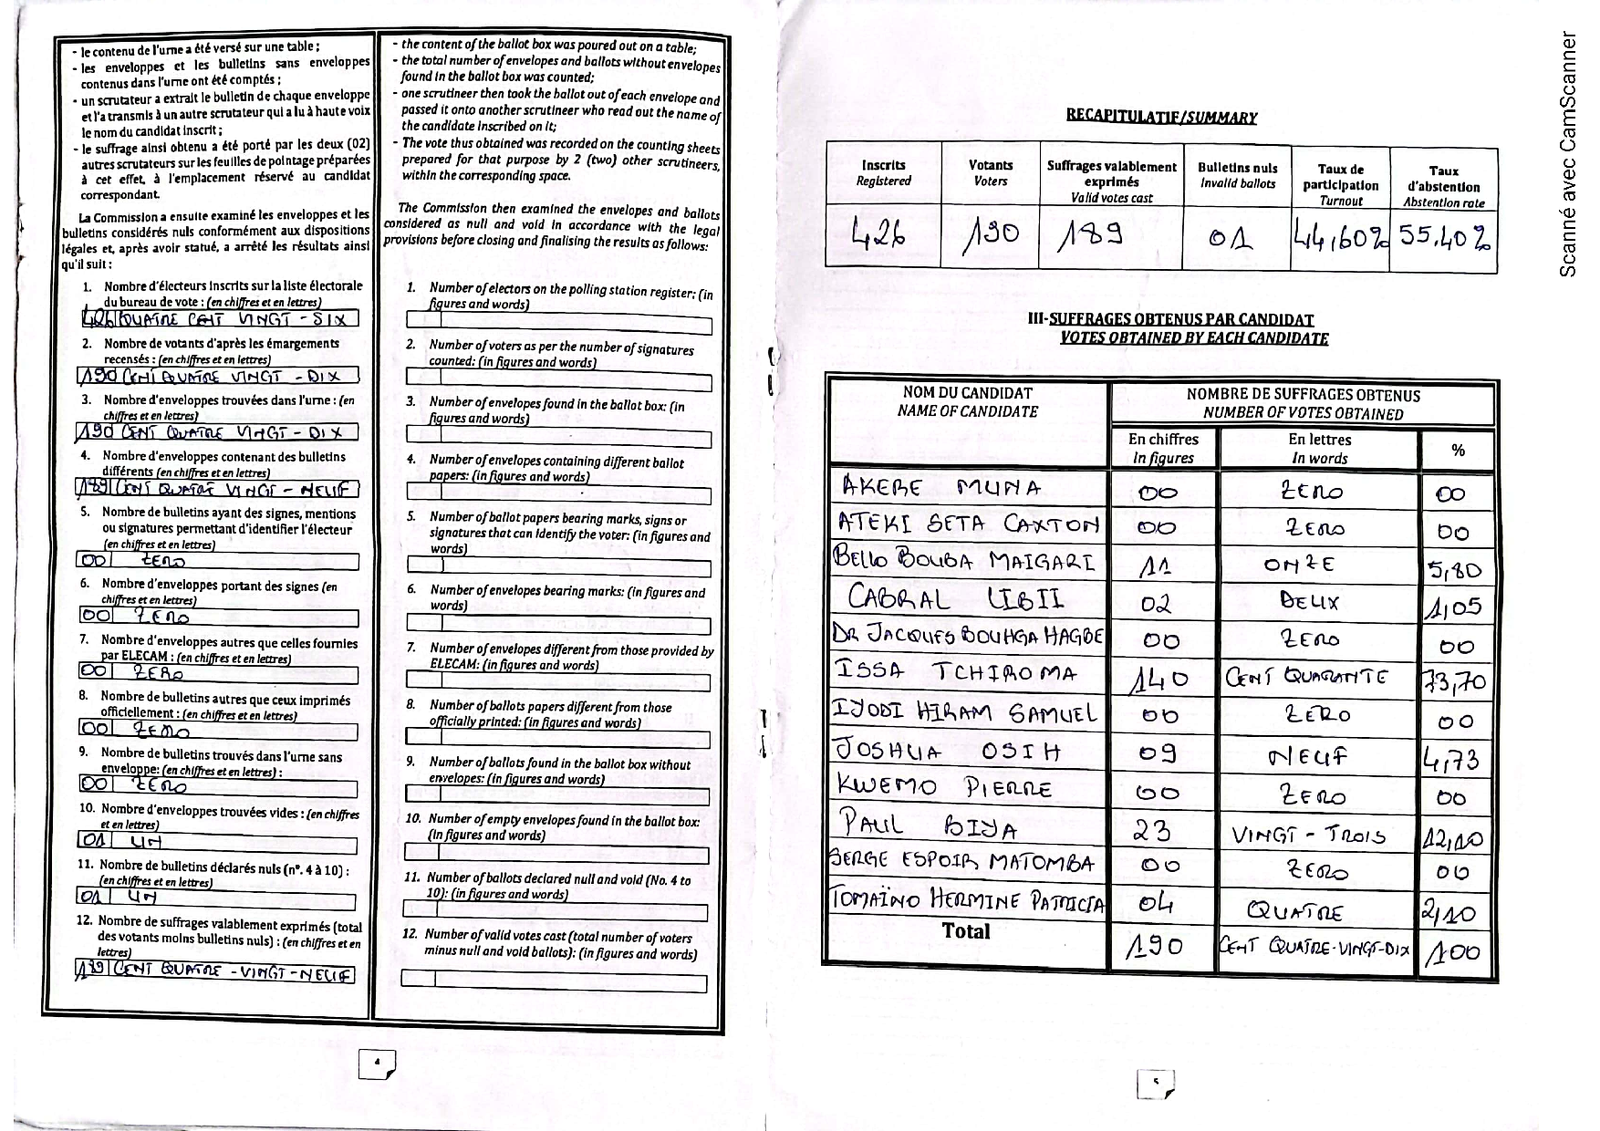 - le contenu de l'urne a été versé sur une table ;
- les enveloppes et les bulletins sans enveloppes
contenus dans l'urne ont été comptés ;
- un scrutateur a extrait le bulletin de chaque enveloppe
et l'a transmis à un autre scrutateur qui a lu à haute voix
le nom du candidat inscrit ;
- le suffrage ainsi obtenu a été porté par les deux (02)
autres scrutateurs sur les feuilles de pointage préparées
à cet effet, à l'emplacement réservé au candidat
correspondant.
La Commission a ensuite examiné les enveloppes et les
bulletins considérés nuls conformément aux dispositions
légales et, après avoir statué, a arrêté les résultats ainsi
qu'il suit :
1. Nombre d'électeurs inscrits sur la liste électorale
du bureau de vote : (en chiffres et en lettres)
426 QUATRE CENT VINGT - SIX
2. Nombre de votants d'après les émargements
recensés : (en chiffres et en lettres)
190 CENT QUATRE VINGT - DIX
3. Nombre d'enveloppes trouvées dans l'urne : (en
chiffres et en lettres)
190 CENT QUATRE VINGT - DIX
4. Nombre d'enveloppes contenant des bulletins
différents (en chiffres et en lettres)
189 CENT QUATRE VINGT - NEUF
5. Nombre de bulletins ayant des signes, mentions
ou signatures permettant d'identifier l'électeur
(en chiffres et en lettres)
00 ZERO
6. Nombre d'enveloppes portant des signes (en
chiffres et en lettres)
00 ZERO
7. Nombre d'enveloppes autres que celles fournies
par ELECAM : (en chiffres et en lettres)
00 ZERO
8. Nombre de bulletins autres que ceux imprimés
officiellement : (en chiffres et en lettres)
00 ZERO
9. Nombre de bulletins trouvés dans l'urne sans
enveloppe: (en chiffres et en lettres) :
00 ZERO
10. Nombre d'enveloppes trouvées vides : (en chiffres
et en lettres)
01 UN
11. Nombre de bulletins déclarés nuls (n°. 4 à 10) :
(en chiffres et en lettres)
01 UN
12. Nombre de suffrages valablement exprimés (total
des votants moins bulletins nuls) : (en chiffres et en
lettres)
189 CENT QUATRE - VINGT - NEUF
- the content of the ballot box was poured out on a table;
- the total number of envelopes and ballots without envelopes
found in the ballot box was counted;
- one scrutineer then took the ballot out of each envelope and
passed it onto another scrutineer who read out the name of
the candidate inscribed on it;
- The vote thus obtained was recorded on the counting sheets
prepared for that purpose by 2 (two) other scrutineers,
within the corresponding space.
The Commission then examined the envelopes and ballots
considered as null and void in accordance with the legal
provisions before closing and finalising the results as follows:
1. Number of electors on the polling station register: (in
figures and words)
2. Number of voters as per the number of signatures
counted: (in figures and words)
3. Number of envelopes found in the ballot box: (in
figures and words)
4. Number of envelopes containing different ballot
papers: (in figures and words)
5. Number of ballot papers bearing marks, signs or
signatures that can identify the voter: (in figures and
words)
6. Number of envelopes bearing marks: (in figures and
words)
7. Number of envelopes different from those provided by
ELECAM: (in figures and words)
8. Number of ballots papers different from those
officially printed: (in figures and words)
9. Number of ballots found in the ballot box without
envelopes: (in figures and words)
10. Number of empty envelopes found in the ballot box:
(in figures and words)
11. Number of ballots declared null and void (No. 4 to
10): (in figures and words)
12. Number of valid votes cast (total number of voters
minus null and void ballots): (in figures and words)
4
RECAPITULATIF/SUMMARY
Inscrits Registered | Votants Voters | Suffrages valablement exprimés Valid votes cast | Bulletins nuls Invalid ballots | Taux de participation Turnout | Taux d'abstention Abstention rate
426 190 189 01 44,60% 55,40%
III-SUFFRAGES OBTENUS PAR CANDIDAT
VOTES OBTAINED BY EACH CANDIDATE
NOM DU CANDIDAT NOMBRE DE SUFFRAGES OBTENUS
NAME OF CANDIDATE NUMBER OF VOTES OBTAINED
En chiffres En lettres %
In figures In words
AKERE MUNA 00 ZERO 00
ATEKI SETA CAXTON 00 ZERO 00
BELLO BOUBA MAIGARI 11 ONZE 5,80
CABRAL LIBII 02 DEUX 1,05
DR JACQUES BOUHGA HAGBE 00 ZERO 00
ISSA TCHIROMA 140 CENT QUARANTE 73,70
IYODI HIRAM SAMUEL 00 ZERO 00
JOSHUA OSIH 09 NEUF 4,73
KWEMO PIERRE 00 ZERO 00
PAUL BIYA 23 VINGT - TROIS 12,10
SERGE ESPOIR MATOMBA 00 ZERO 00
TOMAÏNO HERMINE PATRICIA 04 QUATRE 2,10
Total 190 CENT QUATRE-VINGT-DIX 100
5
Scanné avec CamScanner